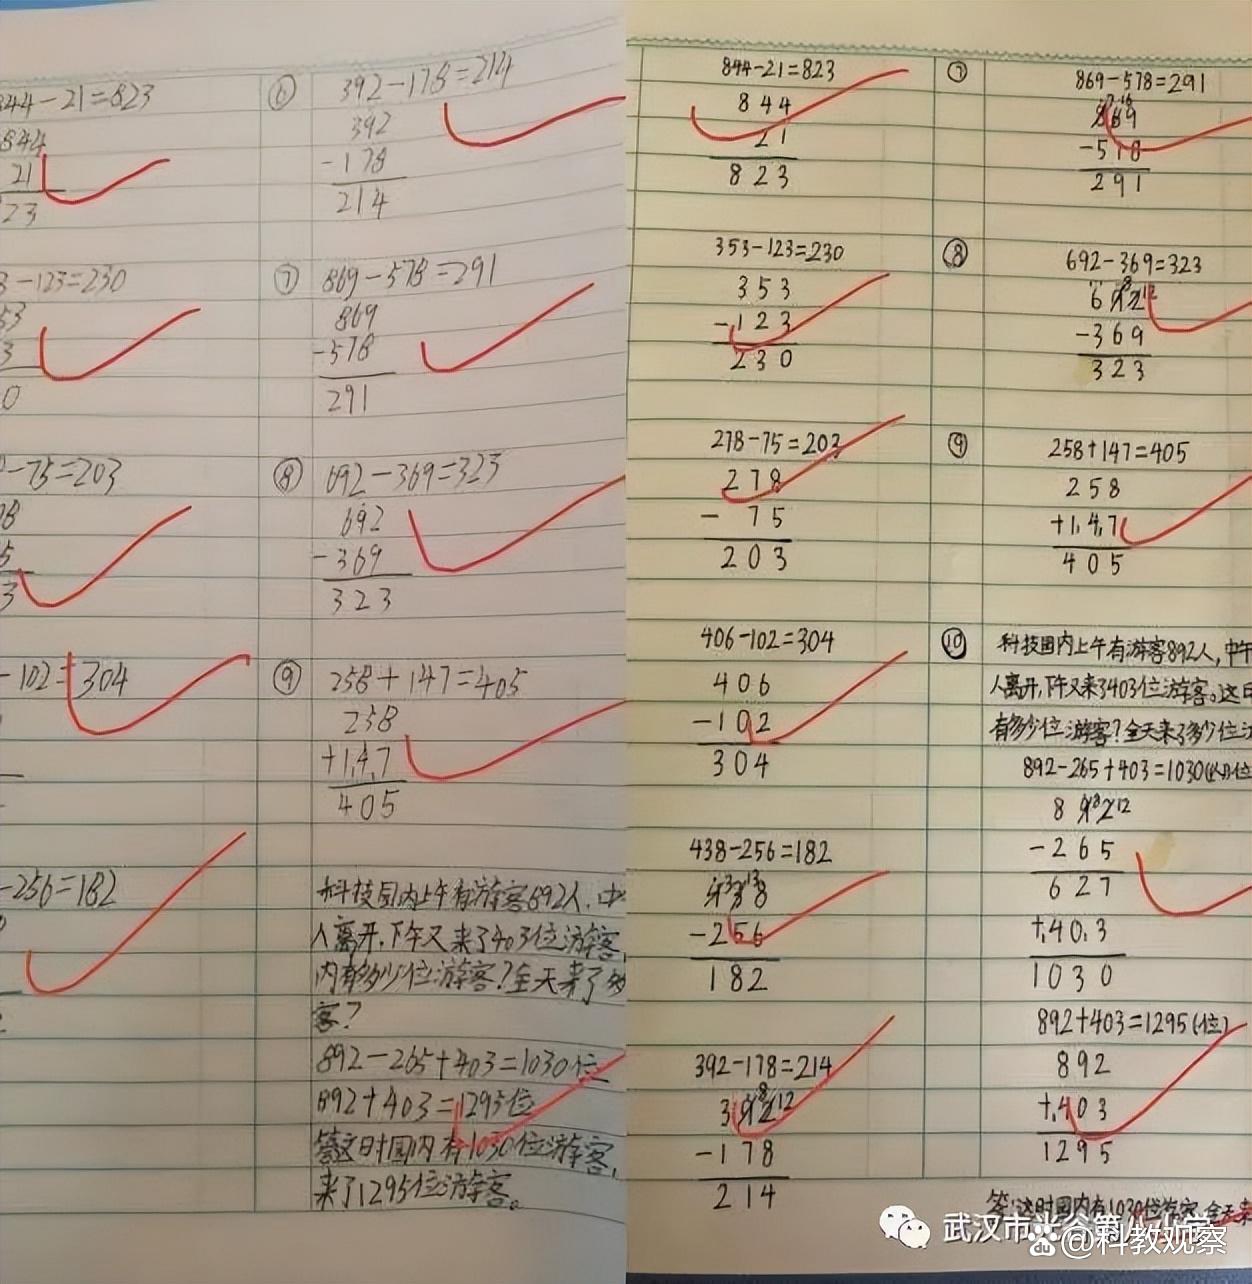 844-21=823
844
21
23
3-123=230
53
3
0
-75=203
78
5
3
-102=304
-256=182
⑥
392-178=214
392
-178
214
⑦
869-578=291
869
-578
291
⑧
692-369=323
692
-369
323
⑨
258+147=405
258
+1,4,7
405
科技园内上午有游客892人,中
人离开,下午又来了403位游客
内有多少位游客?全天来了多
客?
892-265+403=1030位
892+403=1295位
答这时园内有1030位游客,
来了1295位游客。
844-21=823
844
21
823
353-123=230
353
-123
230
278-75=203
278
- 75
203
406-102=304
406
-102
304
438-256=182
-256
182
392-178=214
-178
214
⑦
869-578=291
869
-578
291
⑧
692-369=323
692
-369
323
⑨
258+147=405
258
+1,4,7
405
⑩
科技园内上午有游客892人,中午
人离开,下午又来了403位游客。这时
有多少位游客?全天来了多少位
892-265+403=1030
892
-265
627
+,40,3
1030
892+403=1295(位)
892
+,403
1295
答:这时园内有1030位游客,全天来
武汉市光谷第八小学
@科教观察